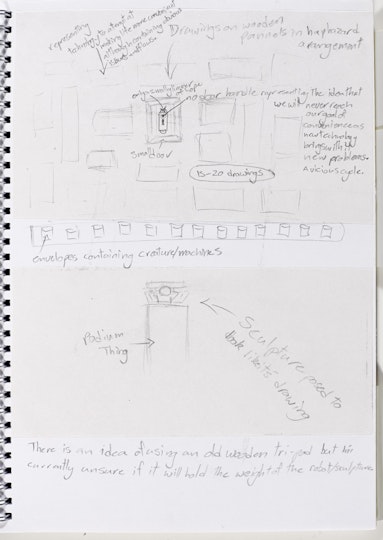 representing
technology's attempt at
making life more convenient
Drawings on wooden
pannels in haphazard
arrangement
no door handle representing the idea that
we will never reach
our goal of
convenience as
new technology
brings with
new problems.
A vicious cycle.
Small door
15-20 drawings
envelopes containing creature/machines
Podium
Thing
Sculpture posed to
look like its drawing
There is an idea of using an old wooden tri-pod but
currently unsure if it will hold the weight of the robot/sculpture